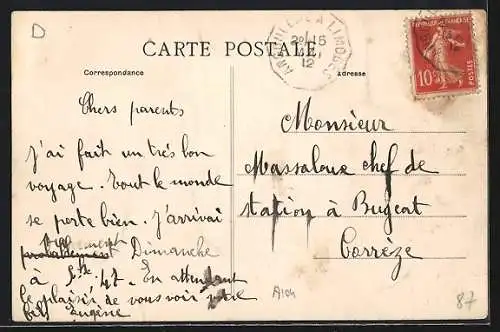 D
CARTE POSTALE
Correspondance
Adresse
LIMOGES
12
RÉPUBLIQUE FRANÇAISE
10
POSTES
Chers parents
J'ai fait un très bon
voyage. Tout le monde
se porte bien. J'arriverai
Dimanche
à 47. En attendant
le plaisir de vous voir votre
fils Eugène
Monsieur
Massaloux chef de
station à Bugeat
Corrèze
A104
87